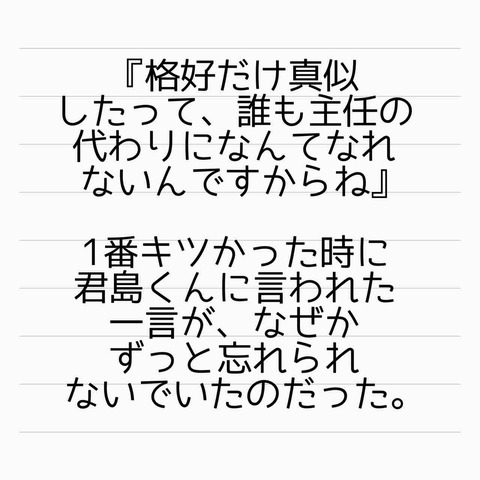 『格好だけ真似
したって、誰も主任の
代わりになんてなれ
ないんですからね』
1番キツかった時に
君島くんに言われた
一言が、なぜか
ずっと忘れられ
ないでいたのだった。